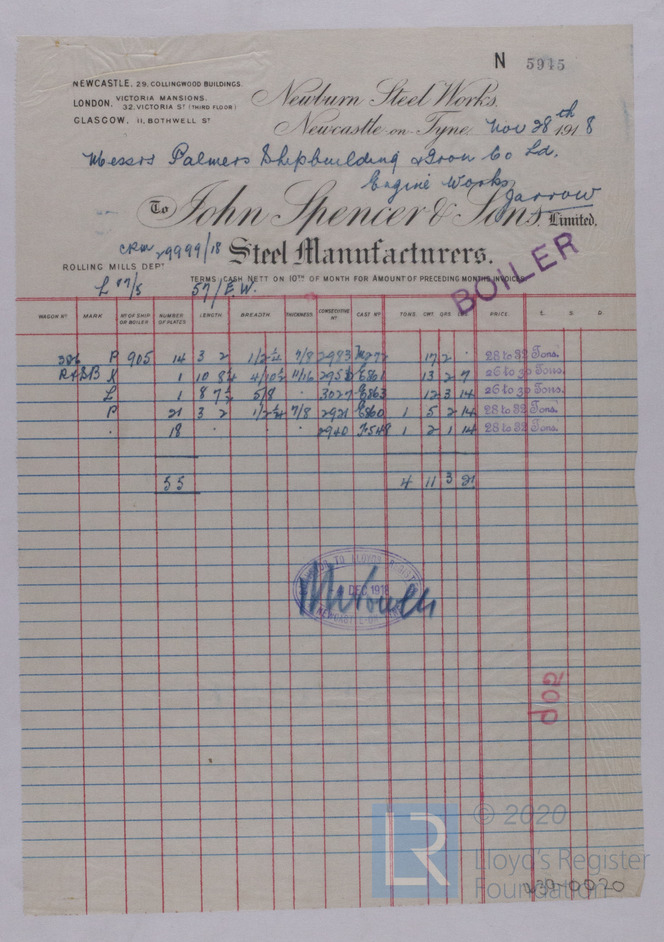 N 5945
NEWCASTLE. 29, COLLINGWOOD BUILDINGS.
LONDON. VICTORIA MANSIONS. 32, VICTORIA ST (THIRD FLOOR)
GLASGOW. 11, BOTHWELL ST
Newburn Steel Works.
Newcastle-on-Tyne, Nov 28th 1918
Messrs Palmers Shipbuilding & Iron Co Ld.
Engine Works
Jarrow
To John Spencer & Sons, Limited.
Steel Manufacturers.
29999/18
ROLLING MILLS DEPT
TERMS CASH NETT ON 10TH OF MONTH FOR AMOUNT OF PRECEDING MONTHS INVOICES
57/E.W.
BOILER
WAGON NO MARK NO OF SHIP OR BOILER NUMBER OF PLATES LENGTH. BREADTH. THICKNESS CONSECUTIVE NO CAST NO TONS. CWT QRS LBS PRICE. £ S. D.
386 P 905 14 3 2 1/2 1/2 7/8 2983 17 2 28 to 32 Tons.
1 10 4/10 1/2 11/16 13 2 7 26 to 30 Tons.
L 1 8 7 1/2 5/8 3027 12 3 14 26 to 30 Tons.
P 21 3 2 7/8 2921 1 5 2 14 28 to 32 Tons.
18 2940 1 2 1 14 28 to 32 Tons.
55 4 11 3 21
DEC 1918
NEWCASTLE-ON-TYNE
902
LR
© 2020
Lloyd's Register
Foundation